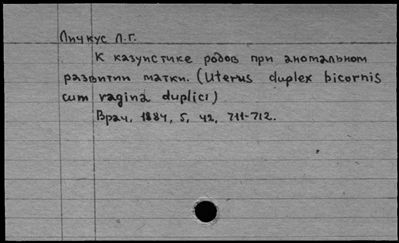 Личкус Л.Г.
К казуистике родов при аномальном
развитии матки. (Uterus duplex bicornis
cum vagina duplici)
Врач, 1884, 5, 42, 711-712.